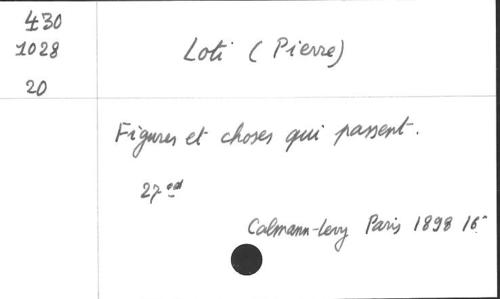 430
1028
20
Loti (Pierre)
Figures et choses qui passent.
27 ed
Calmann-Levy Paris 1898 16°